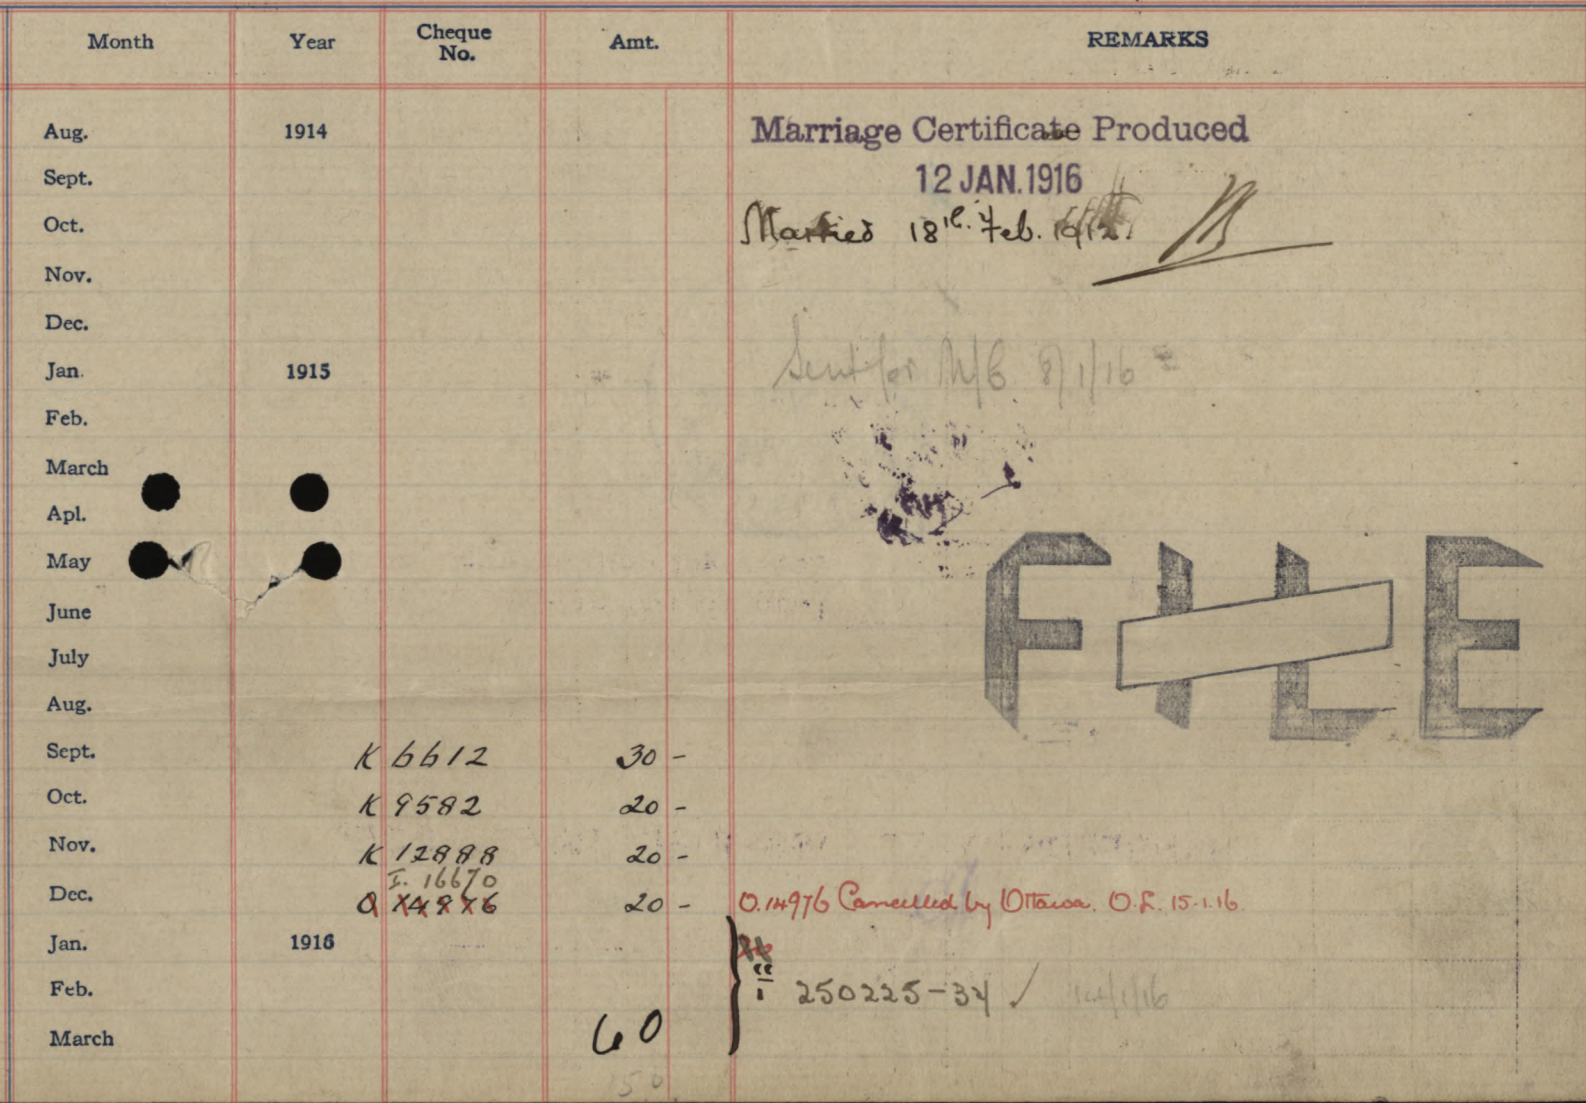 Month Year Cheque No. Amt. REMARKS
Aug. 1914 Marriage Certificate Produced
Sept. 12 JAN. 1916
Oct. Married 18th Feb. 1912.
Nov.
Dec.
Jan. 1915 Sent for M/C 8/1/16
Feb.
March
Apl.
May
June
July
Aug.
FILE
Sept. K 6612 30 -
Oct. K 9582 20 -
Nov. K 12888 20 -
I. 16670
Dec. O 14976 20 - O.14976 Cancelled by Ottawa. O.L. 15.1.16.
Jan. 1916
Feb. " 250225-34 ✓ 14/1/16
March 60
150